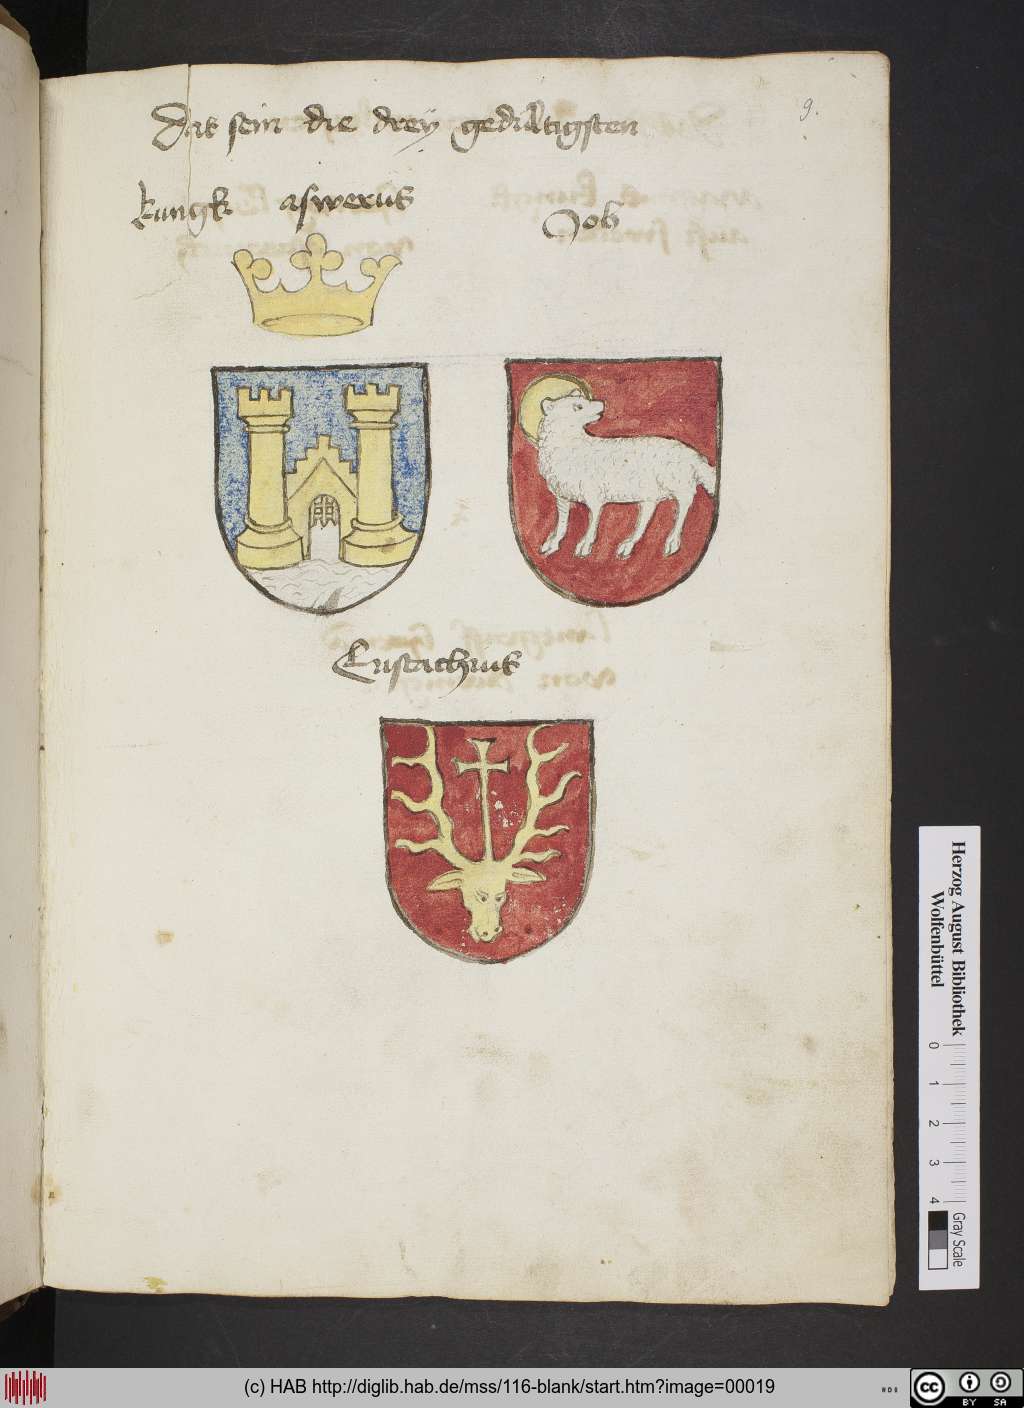 9.
Das sein die drey gedultigsten
kungk aswerus
Job
Eustachius
Herzog August Bibliothek
Wolfenbüttel
0 1 2 3 4
Gray Scale
(c) HAB http://diglib.hab.de/mss/116-blank/start.htm?image=00019
cc BY SA